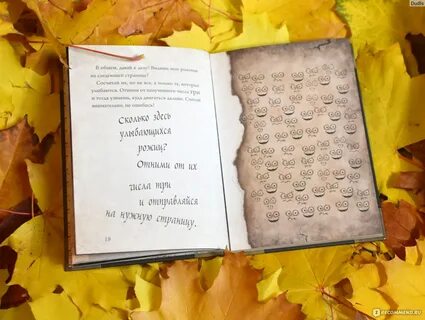 Dudls
В общем, давай к делу! Видишь мои рожицы
на следующей странице?
Сосчитай их, но не все, а только те, которые
улыбаются. Отними от полученного числа три
и тогда узнаешь, куда двигаться дальше. Считай
внимательно, не ошибись!
Сколько здесь
улыбающихся
рожиц?
Отними от их
числа три
и отправляйся
на нужную страницу.
18
RECOMMEND.RU